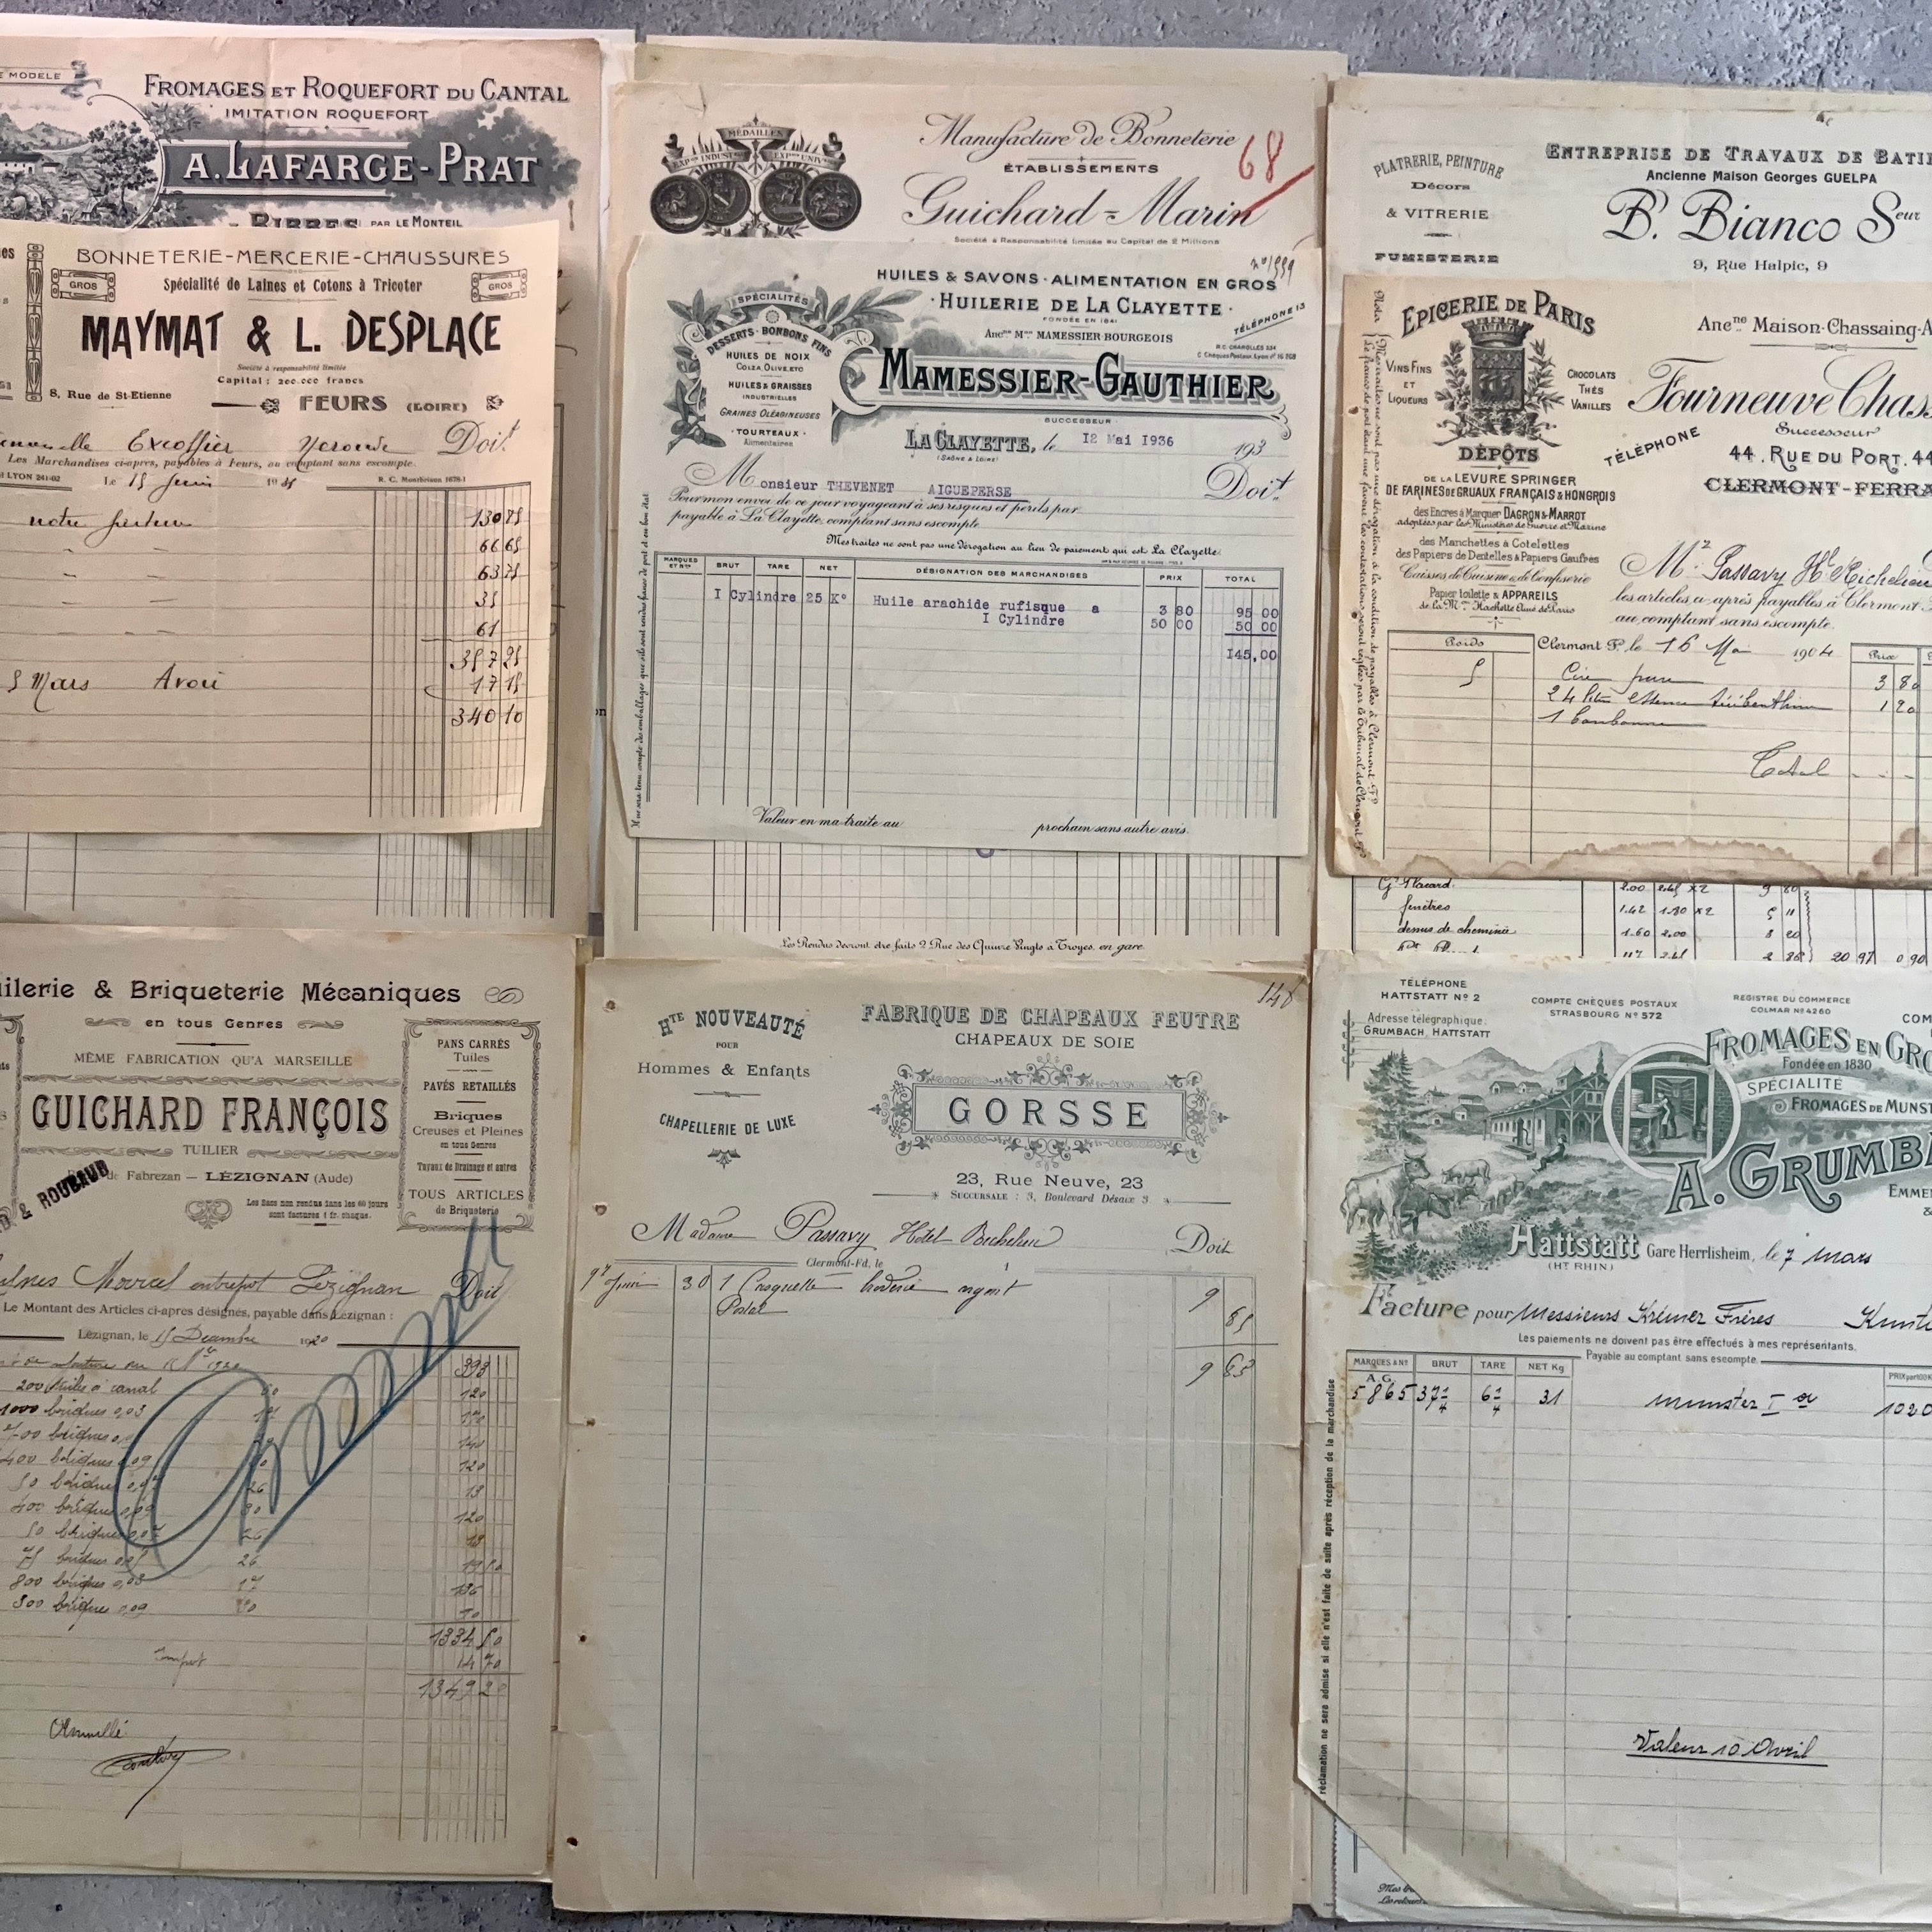 E MODELE
FROMAGES ET ROQUEFORT DU CANTAL
IMITATION ROQUEFORT
A. LAFARGE-PRAT
PAR LE MONTEIL
BONNETERIE-MERCERIE-CHAUSSURES
GROS
Spécialité de Laines et Cotons à Tricoter
GROS
MAYMAT & L. DESPLACE
Société à responsabilité limitée
Capital : 200.000 francs
8, Rue de St-Etienne
FEURS (LOIRE)
Excoffier Doit
Les Marchandises ci-après, payables à Feurs, au comptant sans escompte.
LYON 241-02
Le 15 Juin 19
R. C. Montbrison 1678-1
notre facture 130 75
66 65
63 75
35
61
357 25
5 Mars Avoir 17 15
340 10
MÉDAILLES
Manufacture de Bonneterie
68
ÉTABLISSEMENTS
Guichard-Marin
Société à Responsabilité limitée au Capital de 2 Millions
HUILES & SAVONS · ALIMENTATION EN GROS
· HUILERIE DE LA CLAYETTE ·
FONDÉE EN 1841
TÉLÉPHONE 13
Ancne Mon MAMESSIER-BOURGEOIS
R.C. CHAROLLES 334
C. Chèques Postaux Lyon nº 16 208
SPÉCIALITÉS
DESSERTS · BONBONS FINS
HUILES DE NOIX
COLZA, OLIVE, ETC
HUILES & GRAISSES
INDUSTRIELLES
GRAINES OLÉAGINEUSES
· TOURTEAUX ·
Alimentaires
MAMESSIER-GAUTHIER
SUCCESSEUR
LA CLAYETTE, le 12 Mai 1936 193
(SAÔNE & LOIRE)
Monsieur THEVENET AIGUEPERSE Doit
Pour mon envoi de ce jour voyageant à ses risques et périls par
payable à La Clayette, comptant sans escompte
Mes traites ne sont pas une dérogation au lieu de paiement qui est La Clayette.
MARQUES ET Nos BRUT TARE NET DÉSIGNATION DES MARCHANDISES PRIX TOTAL
I Cylindre 25 K° Huile arachide rufisque a 3 80 95 00
I Cylindre 50 00 50 00
145,00
Il ne sera tenu compte des emballages que s'ils sont rendus franco de port et en bon état
Valeur en ma traite au prochain sans autre avis.
Les Rendus devront être faits 2 Rue des Quinze Vingts à Troyes, en gare
PLATRERIE, PEINTURE
Décors
& VITRERIE
FUMISTERIE
ENTREPRISE DE TRAVAUX DE BATI
Ancienne Maison Georges GUELPA
B. Bianco Seur
9, Rue Halpic, 9
EPICERIE DE PARIS
VINS FINS
ET
LIQUEURS
CHOCOLATS
THÉS
VANILLES
DÉPÔTS
DE LA LEVURE SPRINGER
DE FARINES DE GRUAUX FRANÇAIS & HONGROIS
des Encres à Marquer DAGRON & MARROT
adoptées par les Ministères de Guerre et Marine
des Manchettes à Cotelettes
des Papiers de Dentelles & Papiers Gaufrés
Caisses de Cuisine & de Confiserie
Papier toilette & APPAREILS
Ancne Maison-Chassaing-A
Fourneuve Chas
Successeur
TÉLÉPHONE
44. RUE DU PORT. 44
CLERMONT-FERRA
Mr Passavy Hl Richelieu
les articles ci-après payables à Clermont
au comptant sans escompte.
Poids
Clermont Fd le 16 Mai 1904
Prix
5 Cire jaune 3 80
24 litres essence térébenthine 1 20
1 bonbonne
Total
Gd Placard 2.00 2.45 x2 9 80
fenêtres 1.42 1.80 x2 5 11
dessus de cheminée 1.60 2.00 3 20
20 97 0 90
ilerie & Briqueterie Mécaniques
en tous Genres
MÊME FABRICATION QU'A MARSEILLE
GUICHARD FRANÇOIS
TUILIER
de Fabrezan — LÉZIGNAN (Aude)
& ROUBAUD
Les Sacs non rendus dans les 60 jours
sont facturés 1 fr. chaque.
PANS CARRÉS
Tuiles
PAVÉS RETAILLÉS
Briques
Creuses et Pleines
en tous Genres
Tuyaux de Drainage et autres
TOUS ARTICLES
de Briqueterie
Marcel entrepot Lézignan Doit
Le Montant des Articles ci-après désignés, payable dans Lézignan :
Lézignan, le 15 Décembre 1920
393
200 tuiles à canal 120
1000 briques 0,03
700 briques 140
400 briques 0,09 120
50 briques 13
400 briques 0,09 30 120
50 briques 26 13
75 briques 26 19 50
800 briques 0,03 17 136
300 briques 0,09
1334 50
14 70
1349 20
148
Hte NOUVEAUTÉ
POUR
Hommes & Enfants
CHAPELLERIE DE LUXE
FABRIQUE DE CHAPEAUX FEUTRE
CHAPEAUX DE SOIE
GORSSE
23, Rue Neuve, 23
SUCCURSALE : 3, Boulevard Désaix 3
Madame Passavy Hotel Richelieu Doit
Clermont-Fd, le
Juin 30 1 Casquette broderie argent 9
85
9 85
TÉLÉPHONE
HATTSTATT No 2
COMPTE CHÈQUES POSTAUX
STRASBOURG No 572
REGISTRE DU COMMERCE
COLMAR No 4260
COM
Adresse télégraphique:
GRUMBACH, HATTSTATT
FROMAGES EN GRO
Fondée en 1830
SPÉCIALITÉ
FROMAGES DE MUNST
A. GRUMBA
EMME
Hattstatt Gare Herrlisheim, le 7 mars
(HT RHIN)
Facture pour Messieurs Kremer Frères
Les paiements ne doivent pas être effectués à mes représentants.
Payable au comptant sans escompte.
MARQUES & No BRUT TARE NET Kg PRIX par 100 K
A.G.
5865 37 6 31 munster I a 1020
réclamation ne sera admise si elle n'est faite de suite après réception de la marchandise
Valeur 10 Avril